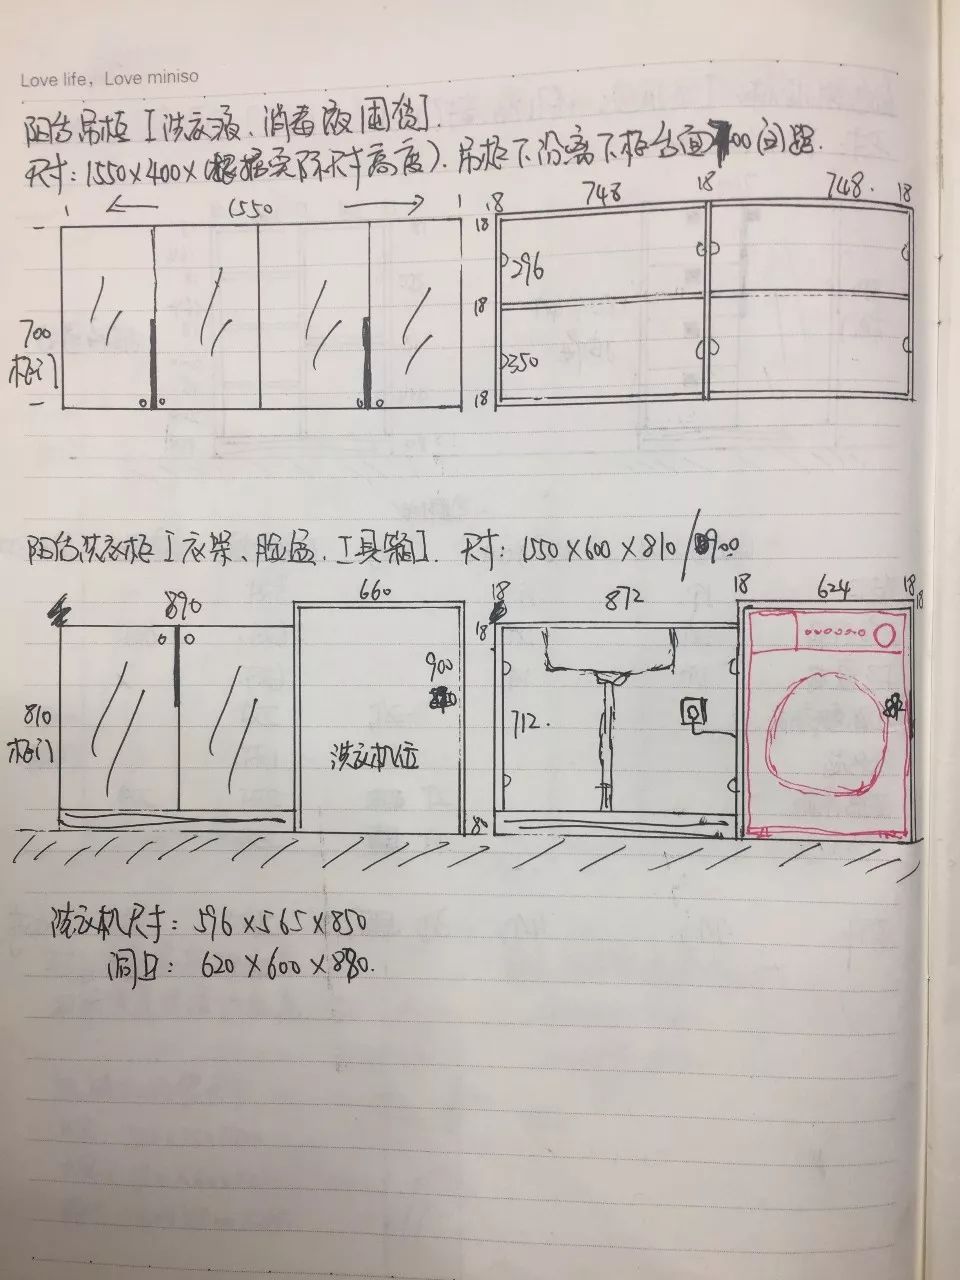 Love life, Love miniso
阳台吊柜 [洗衣液、消毒液囤货].
尺寸: 1550×400×(根据实际尺寸高度). 吊柜下分离下柜台面700间距.
1550
18 748 18 748. 18
18
296
18
700
柜门
350
18
阳台洗衣柜 [衣架、脸盆、工具箱]. 尺寸: 1550×600×810/900
890
660
18 872 18 624 18
18
18
900
810
柜门
712.
洗衣机位
80
洗衣机尺寸: 596×565×850
洞口: 620×600×880.